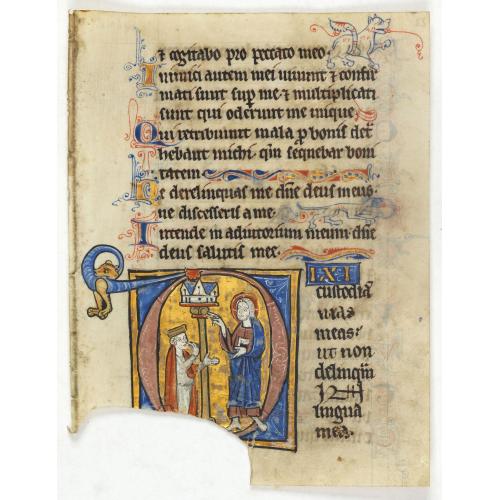 ⁊ cogitabo pro peccato meo.
Inimici autem mei uiuunt ⁊ confir
mati sunt sup me ⁊ multiplicati
sunt qui oderunt me inique.
Qui retribuunt mala p bonis det
hebant michi qm̄ sequebar boni
tatem
Ne derelinquas me dn̄e deus meus
ne discesseris a me.
Intende in adiutorium meum dn̄e
deus salutis mee.
DIXI
custodiā
uias
meas:
ut non
delinquā
in
lingua
mea.